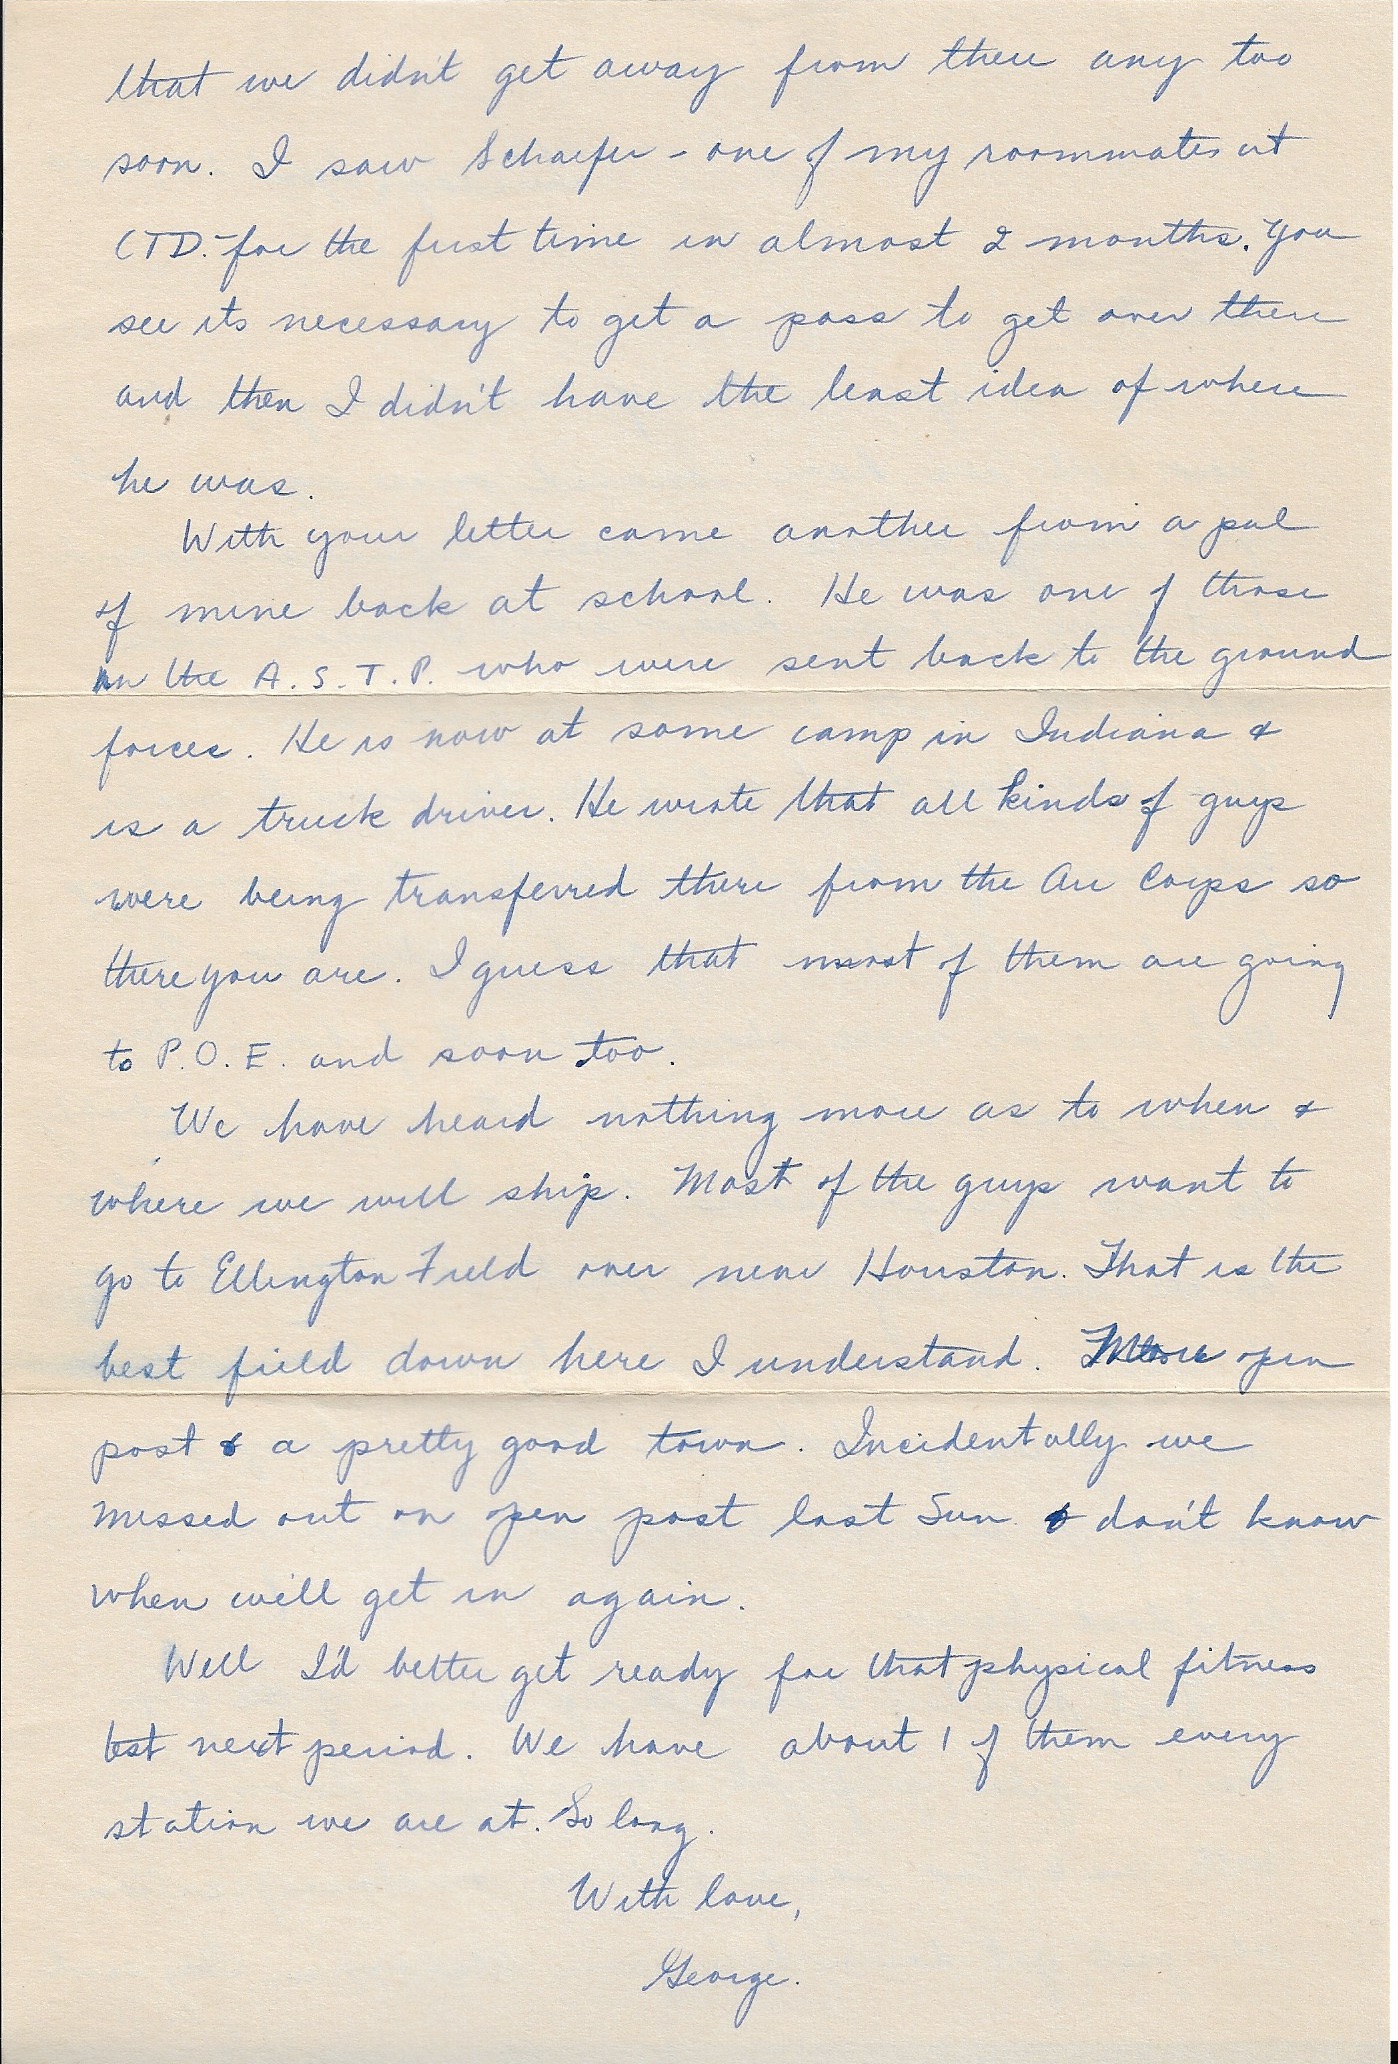 that we didn't get away from there any too
soon. I saw Schaefer - one of my roommates at
CTD. - for the first time in almost 2 months. You
see its necessary to get a pass to get over there
and then I didn't have the least idea of where
he was.
With your letter came another from a pal
of mine back at school. He was one of those
in the A.S.T.P. who were sent back to the ground
forces. He is now at some camp in Indiana &
is a truck driver. He wrote that all kinds of guys
were being transferred there from the Air Corps so
there you are. I guess that most of them are going
to P.O.E. and soon too.
We have heard nothing more as to when &
where we will ship. Most of the guys want to
go to Ellington Field over near Houston. That is the
best field down here I understand. More open
post & a pretty good town. Incidentally we
missed out on open post last Sun & don't know
when we'll get in again.
Well I'd better get ready for that physical fitness
test next period. We have about 1 of them every
station we are at. So long.
With love,
George.